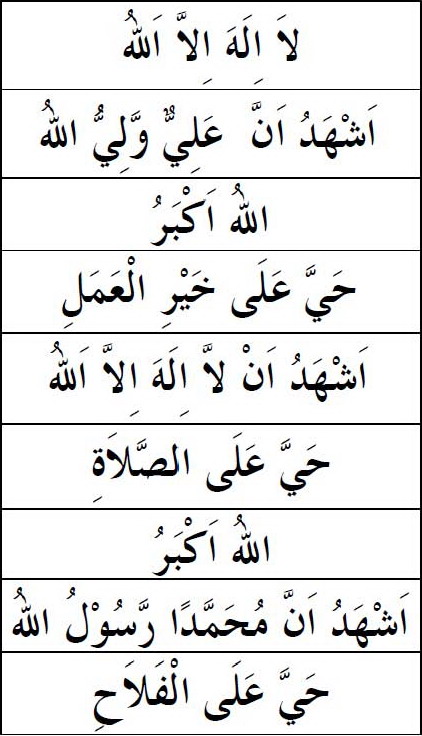 لاَ اِلَهَ اِلاَّ اَللهُ
اَشْهَدُ اَنَّ عَلِيٌّ وَّلِيُّ اللهُ
اللهُ اَكْبَرُ
حَيَّ عَلَى خَيْرِ الْعَمَلِ
اَشْهَدُ اَنْ لاَّ اِلَهَ اِلاَّ اَللهُ
حَيَّ عَلَى الصَّلاَةِ
اللهُ اَكْبَرُ
اَشْهَدُ اَنَّ مُحَمَّدًا رَّسُوْلُ اللهُ
حَيَّ عَلَى الْفَلاَحِ